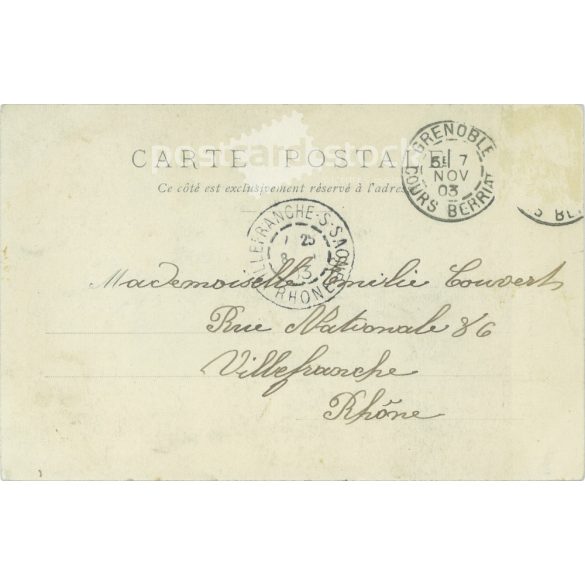 CARTE POSTALE
Ce côté est exclusivement réservé à l'adresse
GRENOBLE
7
NOV
03
COURS BERRIAT
S BE
VILLEFRANCHE-S-SAONE
25
8
RHONE
Mademoiselle Emilie Couvert
Rue Nationale 86
Villefranche
Rhône
postcard stock